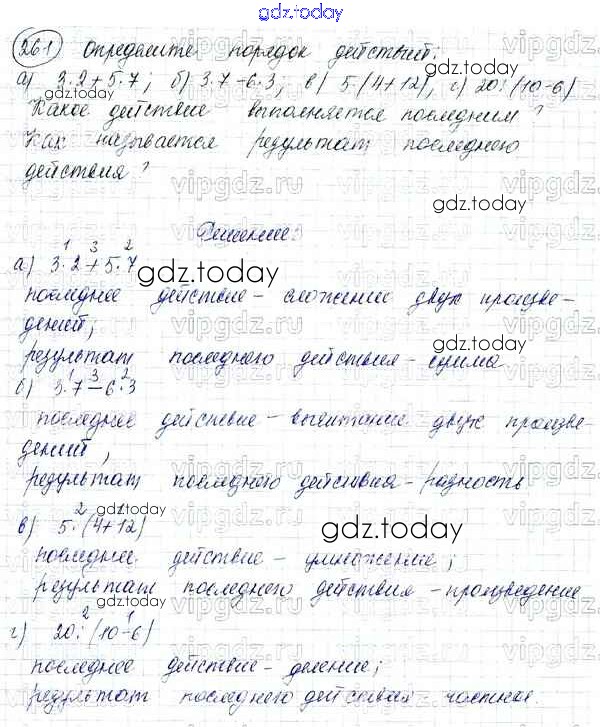 gdz.today
261) Определите порядок действий;
а) 3·2+5·7; б) 3·7-6·3; в) 5(4+12), г) 20:(10-6)
gdz.today
Какое действие выполняется последним?
Как называется результат последнего
действия?
vipgdz.ru
gdz.today
Решение:
1 3 2
а) 3·2+5·7
gdz.today
последнее действие - сложение двух произве-
дений;
gdz.today
результат последнего действия - сумма
1 3 2
б) 3·7-6·3
последнее действие - вычитание двух произве-
дений,
результат последнего действия - разность
gdz.today
2
в) 5·(4+12)
gdz.today
последнее действие - умножение;
результат последнего действия - произведение
gdz.today
2 1
г) 20:(10-6)
последнее действие - деление;
результат последнего действия частное.